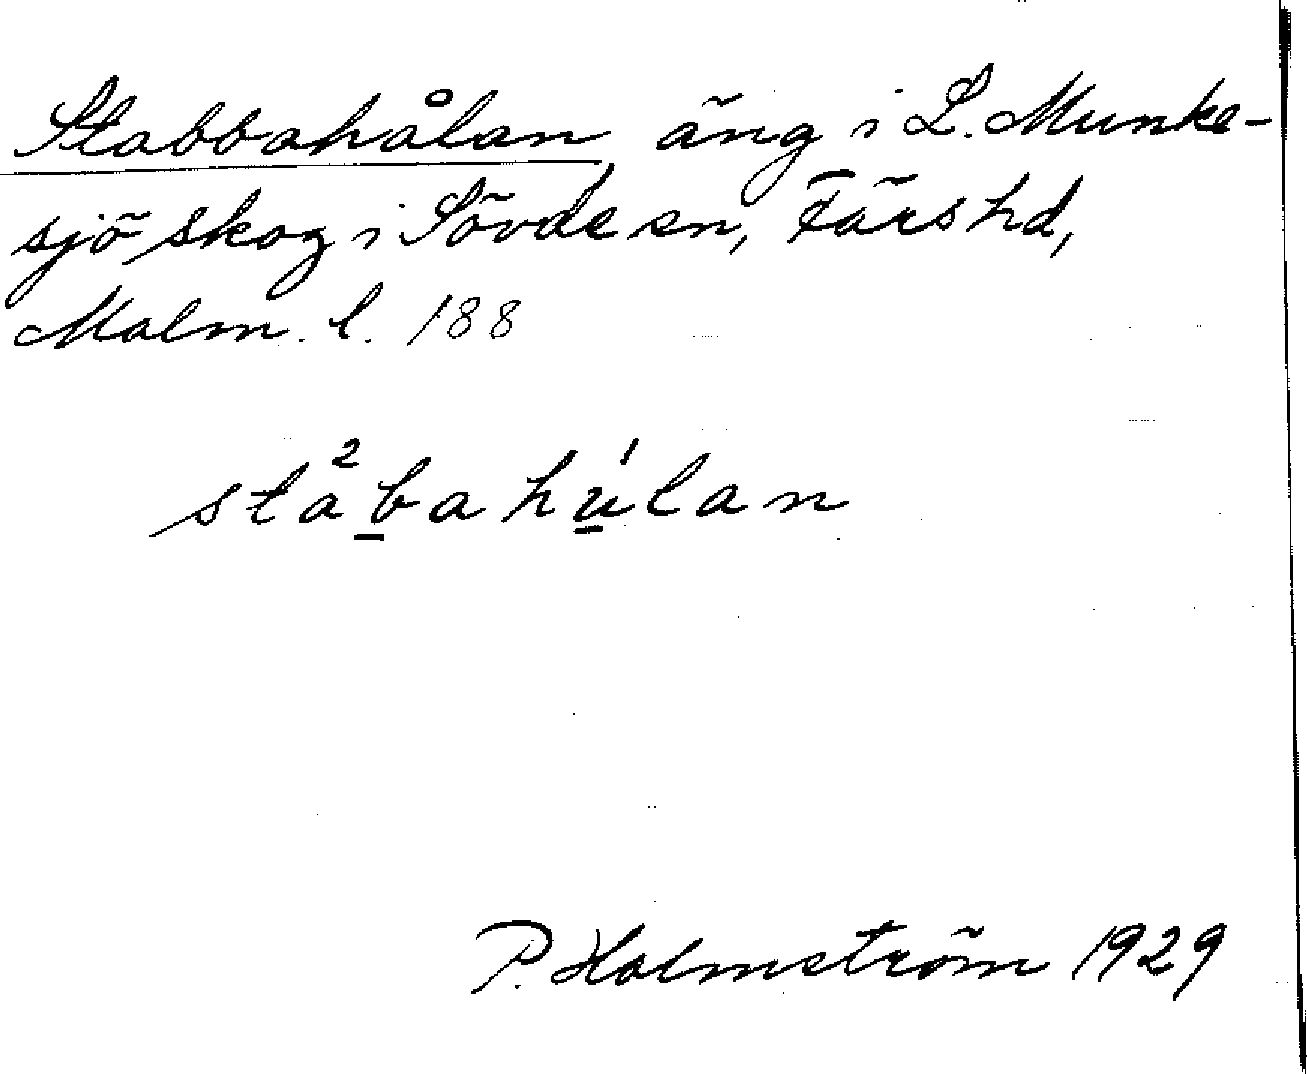 Stabbahålan, äng i L. Munka-
sjö skog i Sövde sn, Färs hd,
Malm. l. 188
sta²b̲ahú̲lan
P. Holmström 1929